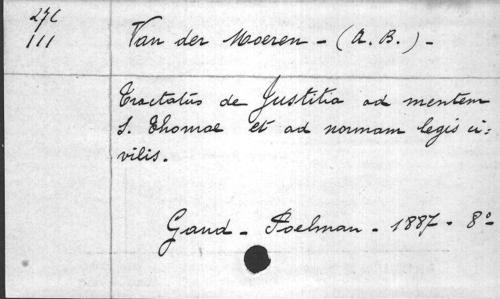 27C
111
Van der Moeren - (A. B.) -
Tractatus de Justitia ad mentem
S. Thomae et ad normam legis ci-
vilis.
Gand - Poelman - 1887 - 8º